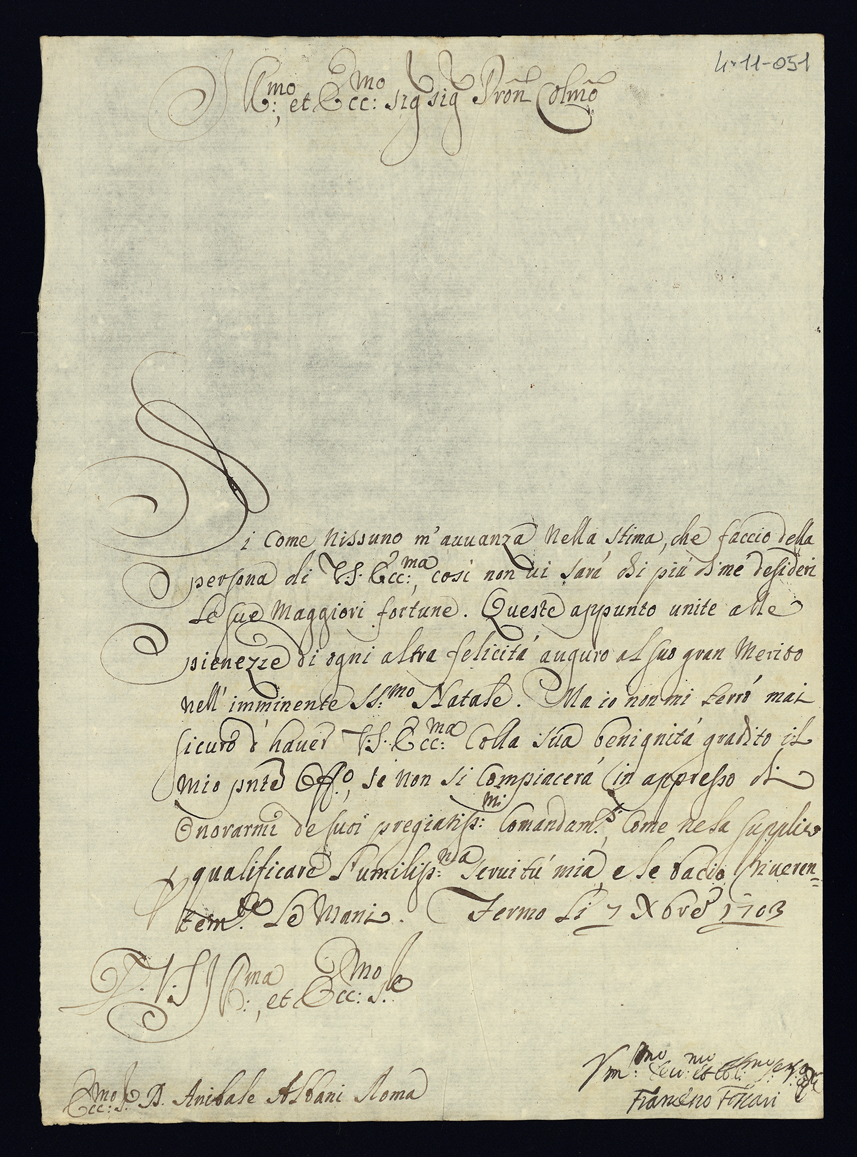 4-11-051
Ill.mo et Ecc:mo Sig Sig Pron Colmo
Si come nissuno m'auuanza nella stima, che faccio della
persona di V.S. Ecc:ma, così non ui sarà chi più di me desideri
le sue maggiori fortune. Queste appunto unite alle
pienezze di ogni altra felicità auguro al suo gran Merito
nell'imminente SS:mo Natale. Ma io non mi terrò mai
sicuro d'hauer V.S. Ecc:ma colla sua benignità gradito il
mio pnte Off.o, se non si compiacerà in appresso di
Onorarmi de suoi pregiatiss:mi Comandam.ti Come ne la supplico
qualificare l'umiliss:ma seruitù mia, e le bacio riueren=
tem.te Le Mani. Fermo Li 7 Xbre 1703
D. V.S. Ill:ma, et Ecc:mo S.e
Ecc:mo S. D. Anibale Albani Roma
Vm:mo
Francesco